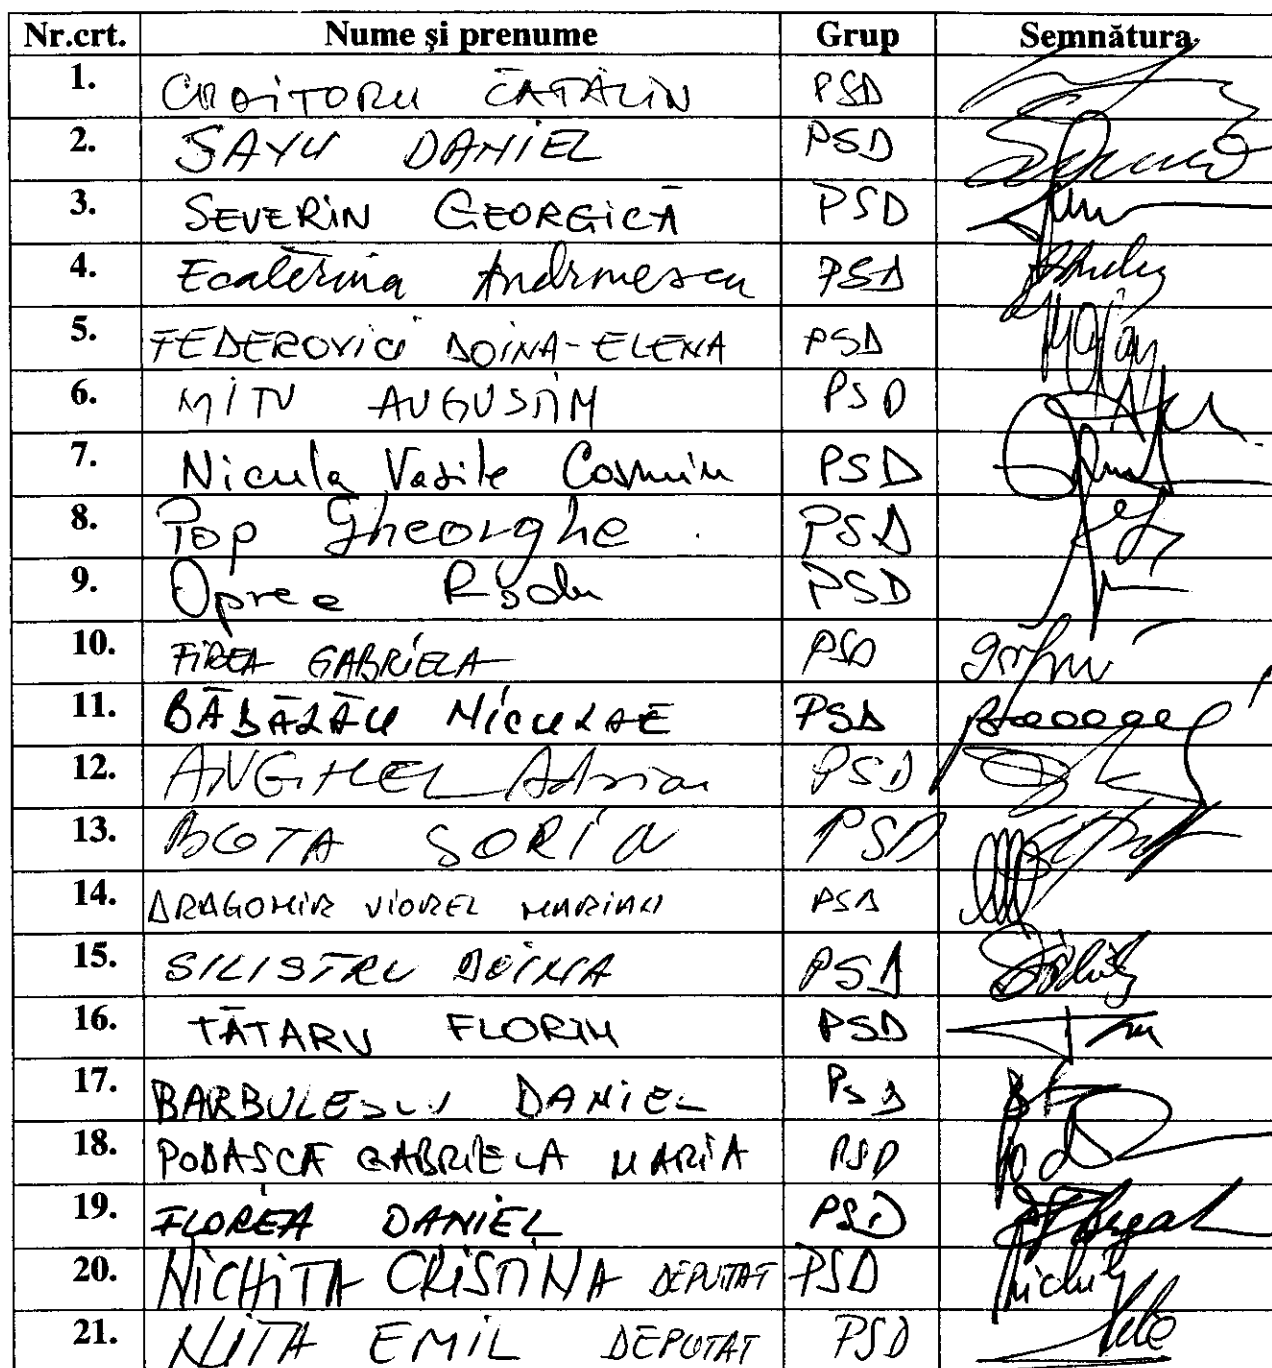 Nr.crt. Nume și prenume Grup Semnătura
1. CROITORU CĂTĂLIN PSD
2. SAVU DANIEL PSD
3. SEVERIN GEORGICĂ PSD
4. Ecaterina Andronescu PSD
5. FEDEROVICI DOINA-ELENA PSD
6. MITU AUGUSTIN PSD
7. Nicula Vasile Cosmin PSD
8. Pop Gheorghe PSD
9. Oprea Radu PSD
10. FIREA GABRIELA PSD
11. BĂDĂLĂU NICULAE PSD
12. ANGHEL Adrian PSD
13. BOTA SORIN PSD
14. DRAGOMIR VIOREL MARIAN PSD
15. SILISTRU DOINA PSD
16. TĂTARU FLORIN PSD
17. BARBULESCU DANIEL PSD
18. PODASCA GABRIELA MARIA PSD
19. FLOREA DANIEL PSD
20. NICHITA CRISTINA DEPUTAT PSD
21. NITA EMIL DEPUTAT PSD